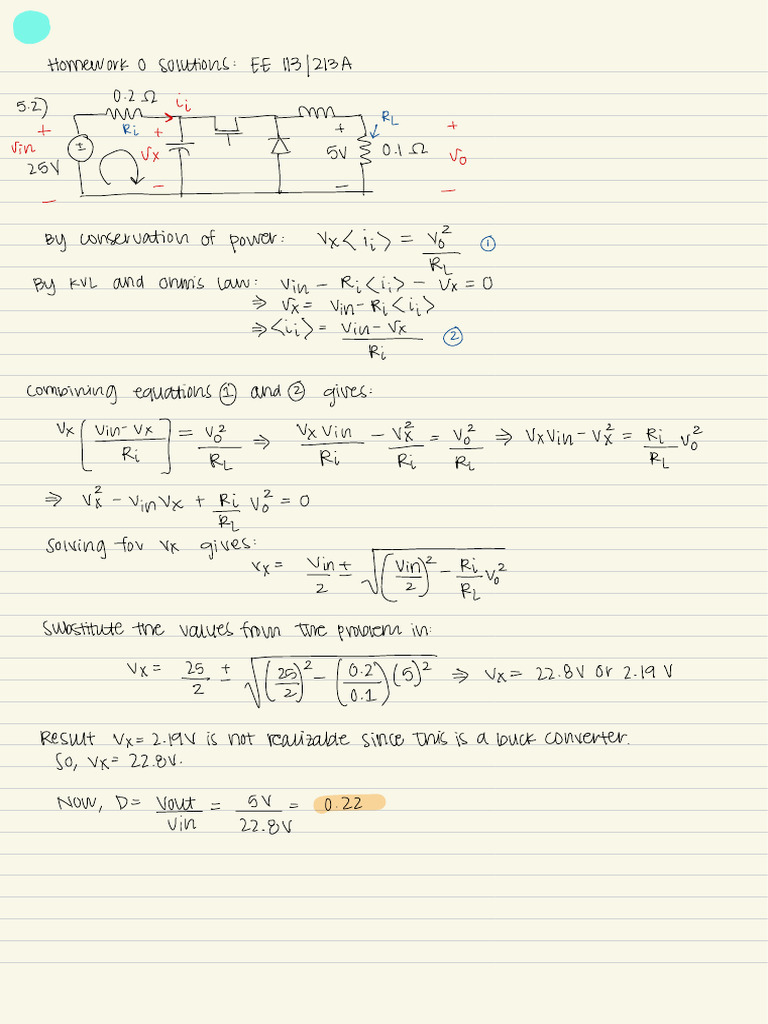 Homework 0 Solutions: EE 113/213A
5.2)
0.2 Ω
i_i
R_i
+
Vin
25V
−
±
+
Vx
−
+
5V
−
R_L
0.1 Ω
+
Vo
−
By conservation of power: Vx⟨i_i⟩ = Vo²/R_L ①
By KVL and Ohm's Law: Vin − Ri⟨i_i⟩ − Vx = 0
⇒ Vx = Vin − Ri⟨i_i⟩
⇒ ⟨i_i⟩ = (Vin − Vx)/Ri ②
Combining equations ① and ② gives:
Vx[(Vin − Vx)/Ri] = Vo²/R_L ⇒ VxVin/Ri − Vx²/Ri = Vo²/R_L ⇒ VxVin − Vx² = Ri/R_L Vo²
⇒ Vx² − VinVx + Ri/R_L Vo² = 0
Solving for Vx gives:
Vx = Vin/2 ± √((Vin/2)² − Ri/R_L Vo²)
Substitute the values from the problem in:
Vx = 25/2 ± √((25/2)² − (0.2/0.1)(5)²) ⇒ Vx = 22.8V or 2.19 V
Result Vx = 2.19V is not realizable since this is a buck converter.
So, Vx = 22.8V.
Now, D = Vout/Vin = 5V/22.8V = 0.22